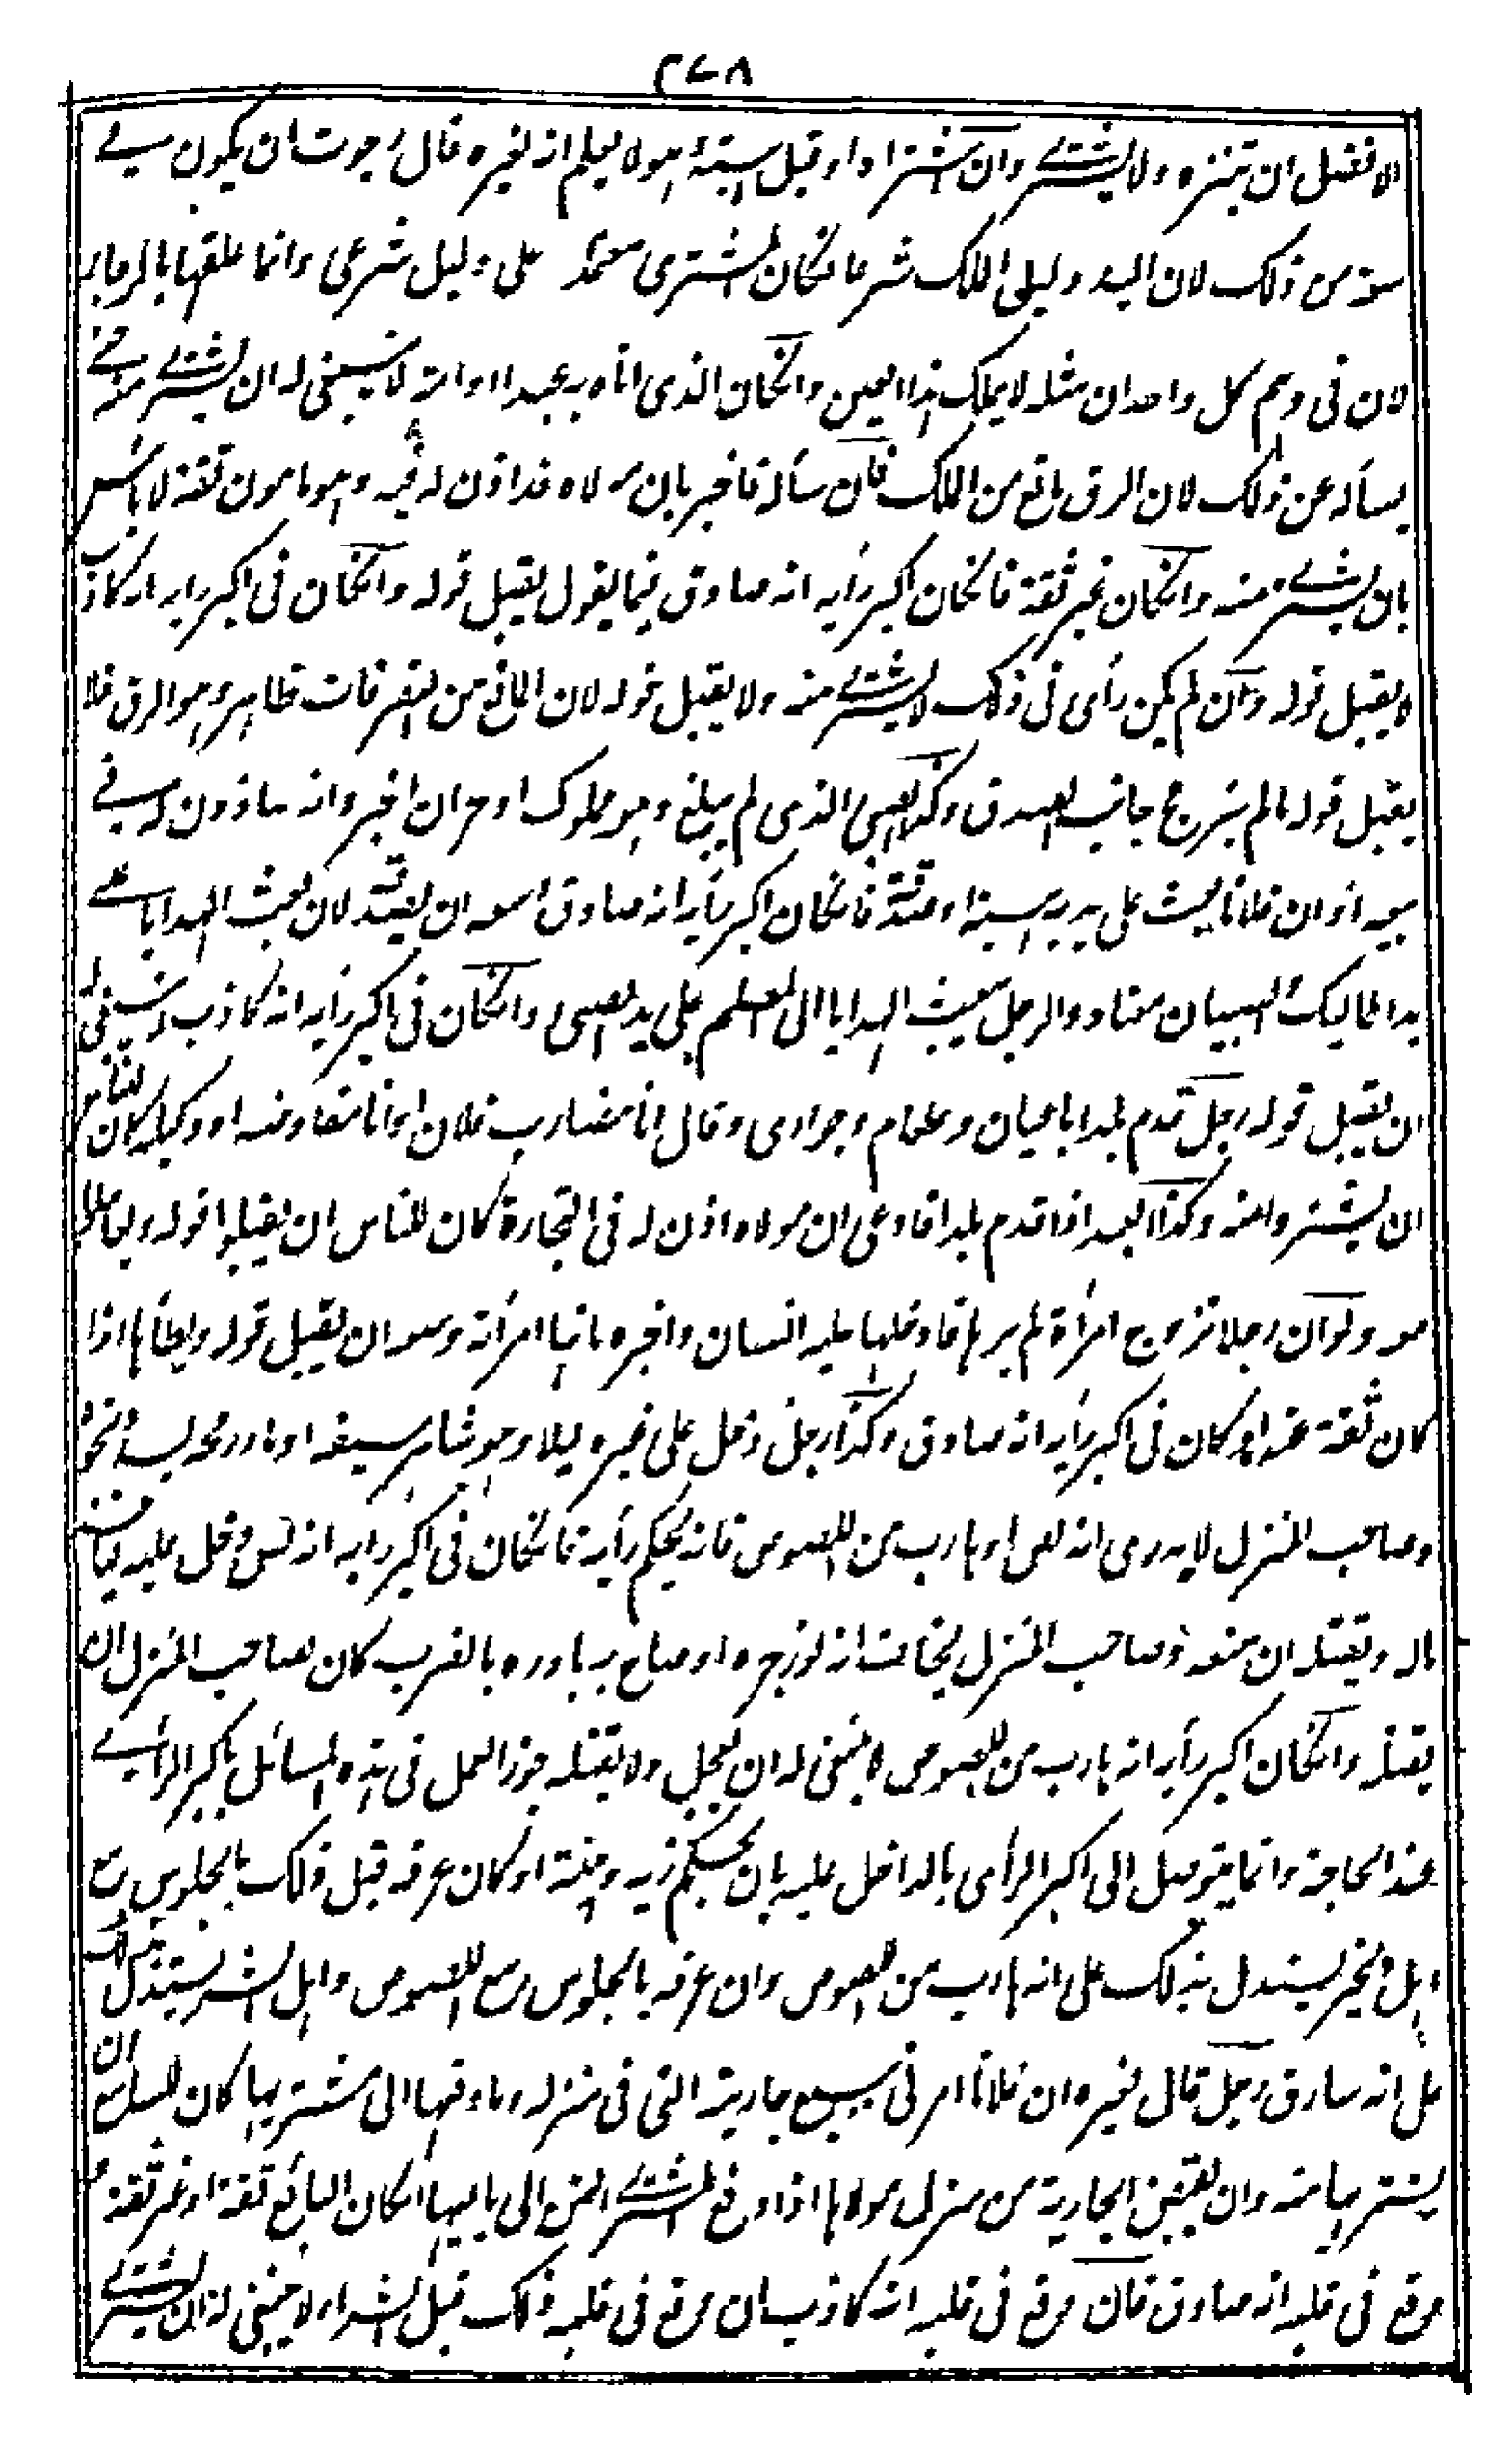 ٢٧٨
الافضل ان يتنزه ولا يشترى وان اشتراه او قبل الهبة وهو لا يعلم انه لغيره قال رجوت ان يكون فى
سعة من ذلك لان اليد دليل الملك شرعا فكان المشترى معتمدا على دليل شرعى وانما علقها بالرجاء
لان فى وهم كل واحد ان مثله لا يملك هذا العين وانكان الذى اتاه به عبدا او امة لا ينبغى له ان يشترى منه حتى
يسأله عن ذلك لان الرق مانع من الملك فان سأله فاخبر بان مولاه قد اذن له فيه وهو مامون ثقة لا باس
بان يشترى منه وانكان غير ثقة فانكان اكبر رأيه انه صادق فيما يقول يقبل قوله وانكان فى اكبر رأيه انه كاذب
لا يقبل قوله وان لم يكن رأى فى ذلك لا يشترى منه ولا يقبل قوله لان المانع من التصرفات ظاهر وهو الرق فلا
يقبل قوله ما لم يترجح جانب الصدق وكذا الصبى الذى لم يبلغ وهو مملوك او حر ان اخبر وانه ماذون له فى
بيعه او ان فلانا بعث على يديه هبة او صدقة فانكان اكبر رأيه انه صادق وسعه ان يصدقه لان بعث الهدايا على
يد المماليك والصبيان معتاد والرجل يبعث الهدايا الى المعلم على يد الصبى وانكان فى اكبر رأيه انه كاذب لا ينبغى له
ان يقبل قوله رجل قدم بلدا باعيان وطعام وجوارى وقال انا مضارب فلان او انا مفاوضه او وكيله كان للناس
ان يشتروا منه وكذا العبد اذا قدم بلدا فادعى ان مولاه اذن له فى التجارة كان للناس ان يقبلوا قوله ويعاملوا
معه ولو ان رجلا تزوج امرأة لم يرها فادخلها عليه انسان واخبره بانها امرأته وسعه ان يقبل قوله ويطأها اذا
كان ثقة عنده او كان فى اكبر رأيه انه صادق وكذا رجل دخل على غيره ليلا وهو شاهر سيفه او ماد رمحه يسد نحوه
وصاحب المنزل لا يدرى انه لص او هارب من اللصوص فانه يحكم رأيه فانكان فى اكبر رأيه انه لص دخل عليه لياخذ
ماله ويقتله ان منعه وصاحب المنزل يخاف انه لو زجره او صاح به بادره بالضرب كان لصاحب المنزل ان
يقتله وانكان اكبر رأيه انه هارب من اللصوص لا ينبغى له ان يعجل ولا يقتله جوز العمل فى هذه المسائل باكبر الرأى
عند الحاجة وانما يتوصل الى اكبر الرأى بالداخل عليه بان يحكم زيه وهيئته او كان عرفه قبل ذلك بالجلوس مع
اهل الخير يستدل بذلك على انه هارب من اللصوص وان عرفه بالجلوس مع اللصوص واهل الشر يستدل بذلك
على انه سارق رجل قال لغيره ان فلانا امرنى ببيع جاريته التى فى منزله ودفعها الى مشتريها كان للسامع ان
يشتريها منه وان يقبض الجارية من منزل مولاها اذا دفع المشترى الثمن الى بايعها انكان البائع ثقة او غير ثقة و
وقع فى قلبه انه صادق فان وقع فى قلبه انه كاذب ان وقع فى قلبه ذلك قبل الشراء لا ينبغى له ان يشترى